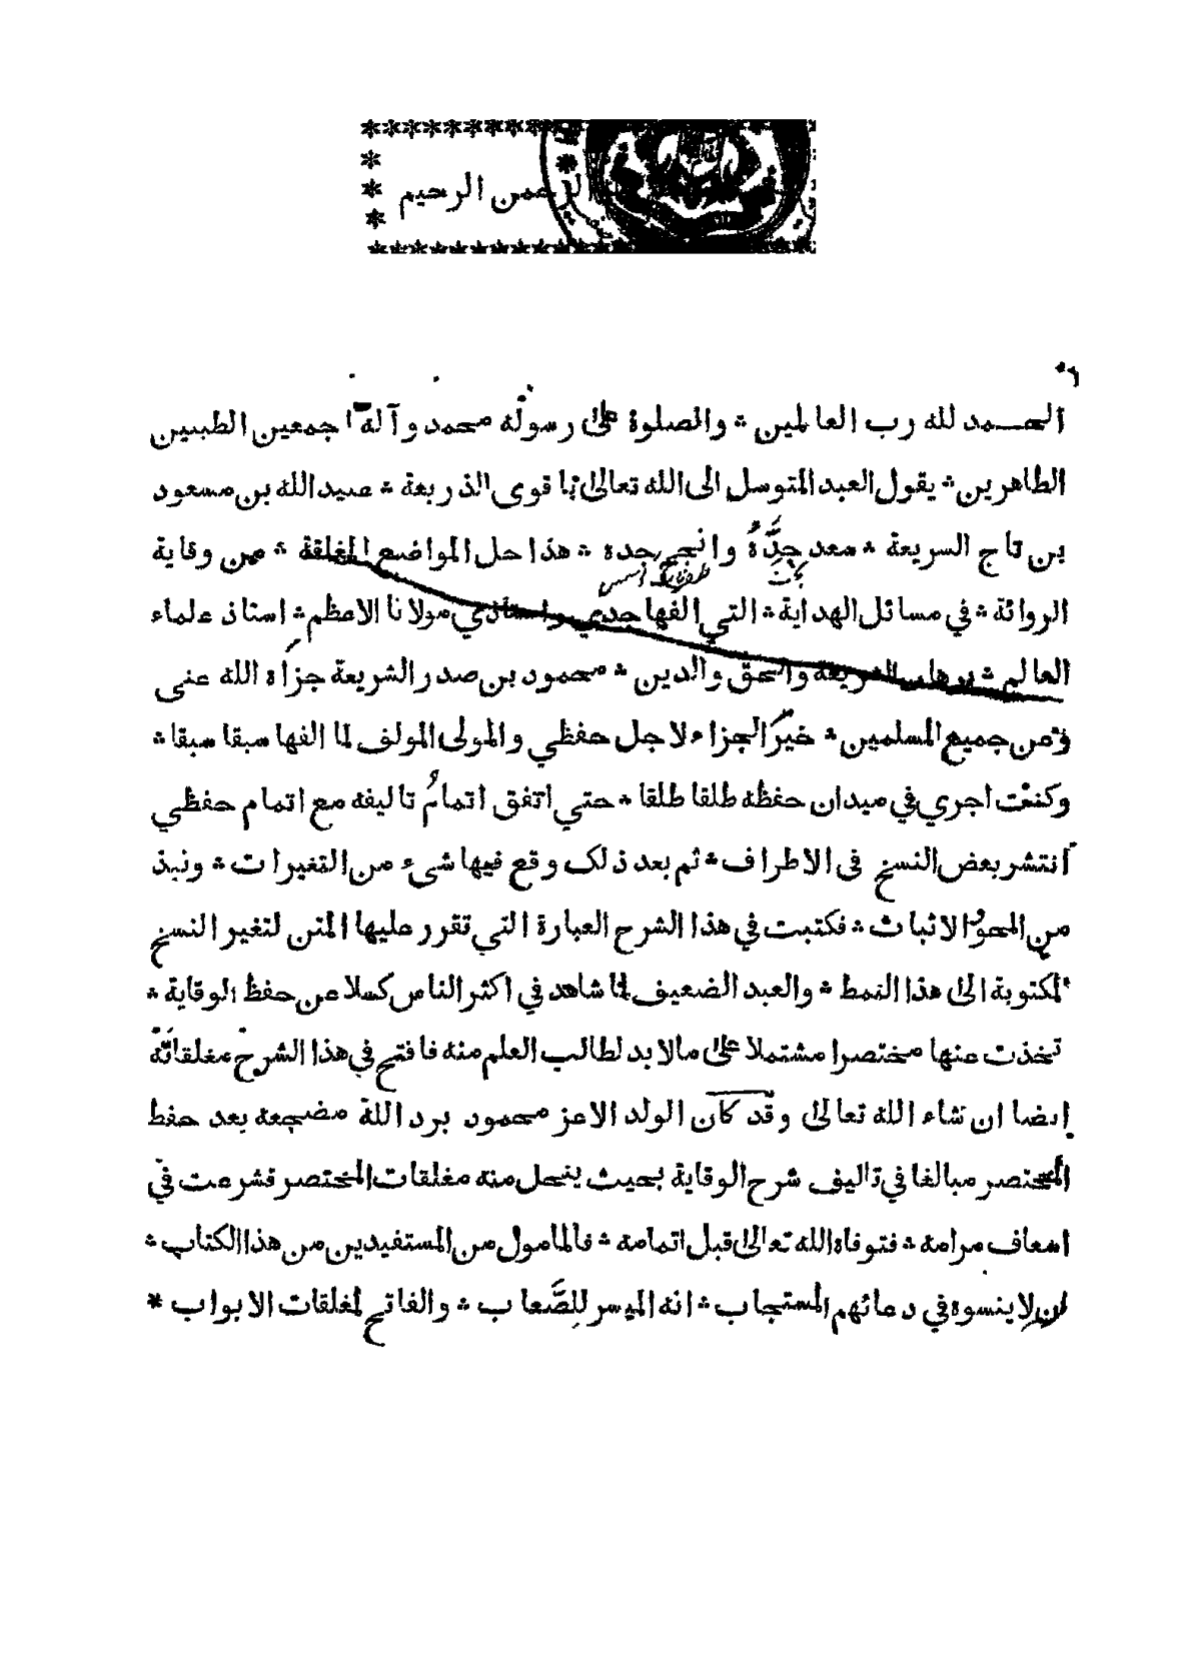 الرحمن الرحيم
الحمد لله رب العالمين * والصلوة على رسوله محمد وآله اجمعين الطيبين
الطاهرين * يقول العبد المتوسل الى الله تعالى باقوى الذريعة * عبيد الله بن مسعود
بن تاج السريعة * سعد جدّهُ وانجح جده * هذا حل المواضع المغلقة * من وقاية
الروائة * في مسائل الهداية * التي الفها جدي واستاذي مولانا الاعظم * استاذ علماء
العالم * برهان الشريعة والحق والدين * محمود بن صدر الشريعة جزاه الله عنى
وعن جميع المسلمين * خير الجزاء لاجل حفظي والمولى المولف لما الفها سبقا سبقا *
وكنت اجري في ميدان حفظه طلقا طلقا * حتي اتفق اتمامُ تاليفه مع اتمام حفظي
انتشر بعض النسخ فى الاطراف * ثم بعد ذلك وقع فيها شىء من التغيرات * ونبذ
من المحو الاثبات * فكتبت في هذا الشرح العبارة التي تقرر عليها المتن لتغير النسخ
لمكتوبة الى هذا النمط * والعبد الضعيف لما شاهد في اكثر الناس كسلا عن حفظ الوقاية *
تخذت عنها مختصرا مشتملا على مالا بد لطالب العلم منه فافتح في هذا الشرح مغلقاته
ايضا ان شاء الله تعالى وقد كان الولد الاعز محمود برد الله مضجعه بعد حفظ
المختصر مبالغا في تاليف شرح الوقاية بحيث ينحل منه مغلقات المختصر فشرعت في
اسعاف مرامه * فتوفاه الله تعالى قبل اتمامه * فالمامول من المستفيدين من هذا الكتاب *
ان لا ينسوه في دعائهم المستجاب * انه الميسر للصّعاب * والفاتح لمغلقات الابواب *